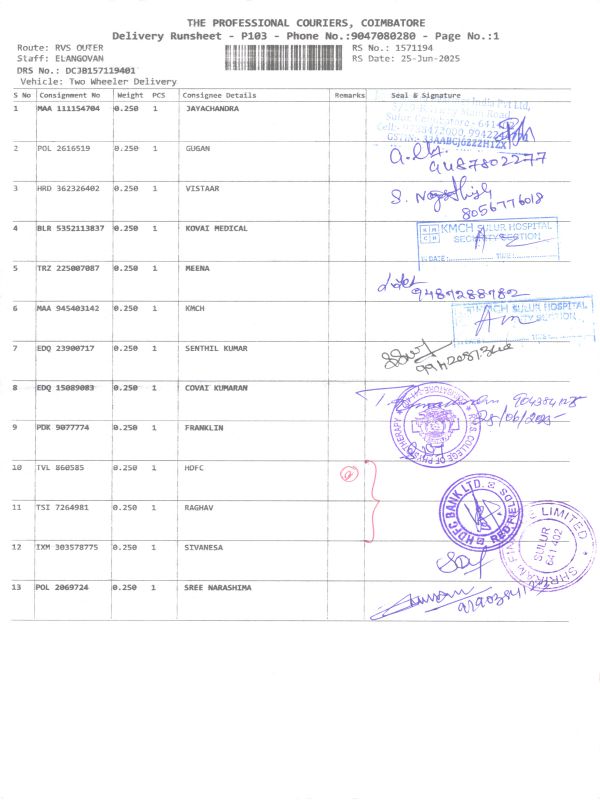 THE PROFESSIONAL COURIERS, COIMBATORE
Delivery Runsheet - P103 - Phone No.:9047080280 - Page No.:1
Route: RVS OUTER
RS No.: 1571194
Staff: ELANGOVAN
RS Date: 25-Jun-2025
DRS No.: DCJB157119401
Vehicle: Two Wheeler Delivery
S No Consignment No Weight PCS Consignee Details Remarks Seal & Signature
1 MAA 111154704 0.250 1 JAYACHANDRA
2 POL 2616519 0.250 1 GUGAN
9487802277
3 HRD 362326402 0.250 1 VISTAAR
8056776018
4 BLR 5352113837 0.250 1 KOVAI MEDICAL
KMCH SULUR HOSPITAL
SECURITY SECTION
DATE: TIME:
5 TRZ 225007087 0.250 1 MEENA
9489288982
6 MAA 945403142 0.250 1 KMCH
KMCH SULUR HOSPITAL
7 EDQ 23900717 0.250 1 SENTHIL KUMAR
8 EDQ 15089083 0.250 1 COVAI KUMARAN
25/06/2025
RVS COLLEGE OF PHYSIOTHERAPY
9 PDK 9077774 0.250 1 FRANKLIN
10 TVL 860585 0.250 1 HDFC
HDFC BANK LTD.
11 TSI 7264981 0.250 1 RAGHAV
SHRIRAM FINANCE LIMITED
SULUR
641 402
12 IXM 303578775 0.250 1 SIVANESA
13 POL 2069724 0.250 1 SREE NARASHIMA